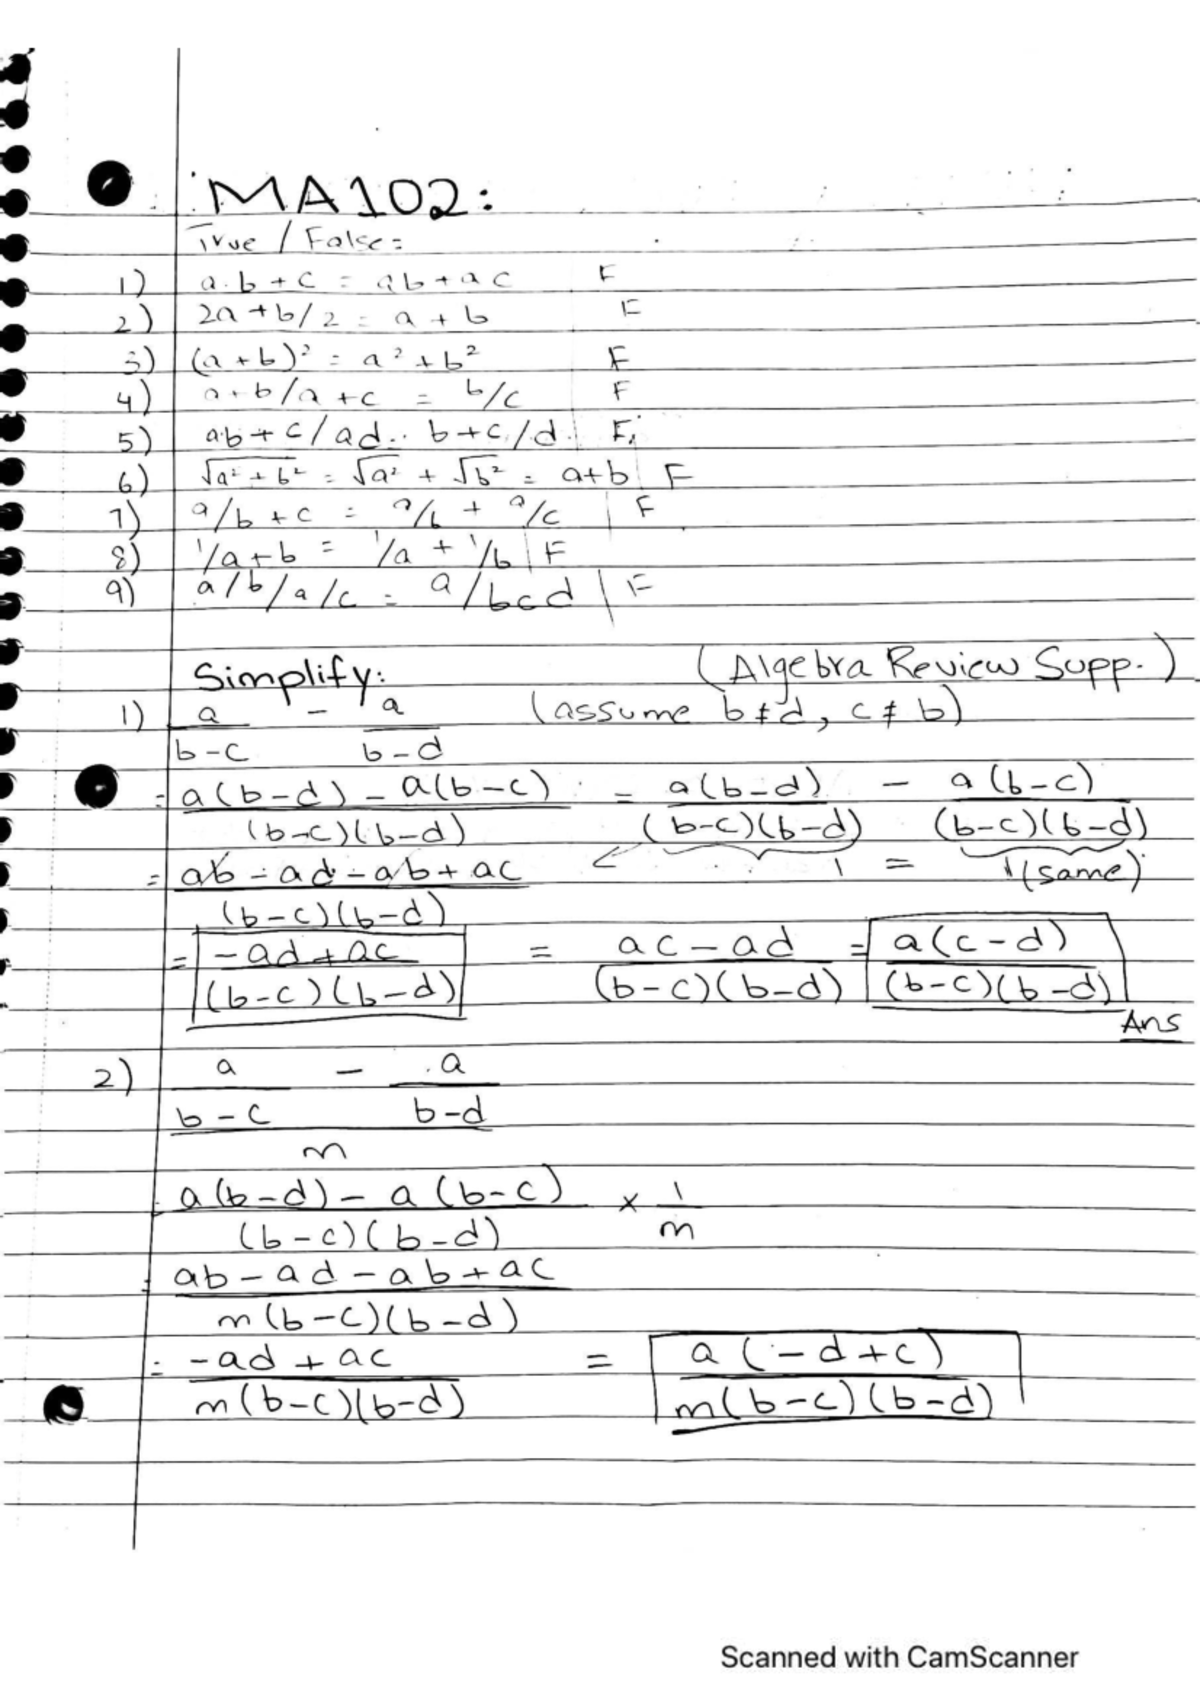 MA102:
True / False:
1) a.b+c = ab+ac F
2) 2a+b/2 = a+b F
3) (a+b)² = a²+b² F
4) a+b/a+c = b/c F
5) ab+c/ad.. b+c/d. F
6) √a²+b² = √a² + √b² = a+b F
7) a/b+c = a/b + a/c F
8) 1/a+b = 1/a + 1/b F
9) a/b/a/c = a/bcd F
Simplify: (Algebra Review Supp.)
1) a/b-c - a/b-d (assume b≠d, c≠b)
= a(b-d) - a(b-c)/(b-c)(b-d) = a(b-d)/(b-c)(b-d) - a(b-c)/(b-c)(b-d)
= ab-ad-ab+ac/(b-c)(b-d) 1 = 1(same)
= -ad+ac/(b-c)(b-d) = ac-ad/(b-c)(b-d) = a(c-d)/(b-c)(b-d)
Ans
2) a/b-c - a/b-d
m
a(b-d) - a(b-c)/(b-c)(b-d) × 1/m
= ab-ad-ab+ac/m(b-c)(b-d)
= -ad+ac/m(b-c)(b-d) = a(-d+c)/m(b-c)(b-d)
Scanned with CamScanner